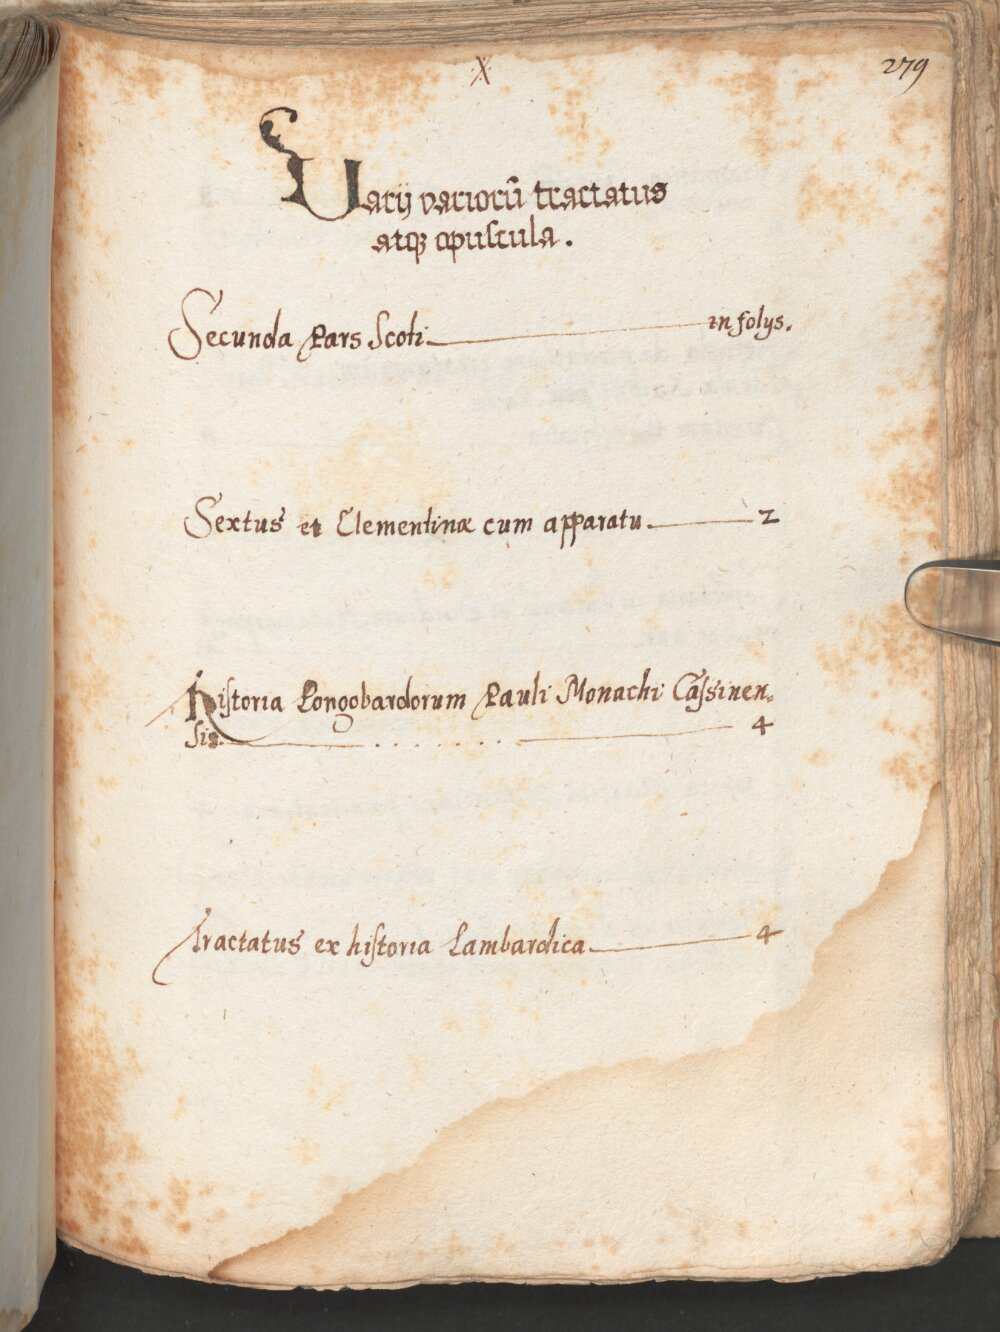 X
279
Uarij variorũ tractatus
atqꝫ opuscula.
Secunda Pars Scoti in folijs.
Sextus et Clementinæ cum apparatu. 2
Historia Longobardorum Pauli Monachi Cassinen-
sis. 4
Tractatus ex historia Lambardica 4